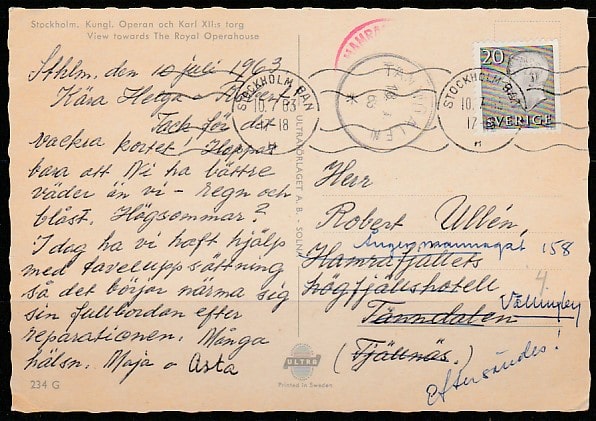 Stockholm. Kungl. Operan och Karl XII:s torg
View towards The Royal Operahouse
Sthlm. den 10 juli 1963
Kära Helga o Robert!
Tack för det
vackra kortet! Hoppas
bara att Ni ha bättre
väder än vi - regn och
blåst. Högsommar?
I dag ha vi haft hjälp
med taveluppsättning
så det börjar närma sig
sin fullbordan efter
reparationen. Många
hälsn. Maja o Asta
234 G
ULTRAFÖRLAGET A. B. SOLNA
ULTRA
Printed in Sweden
HAMRA
TÄNNDALEN
STOCKHOLM BAN
10. 7. 63
17-18
STOCKHOLM BAN
10. 7. 63
17-18
20
SVERIGE
Herr
Robert Ullén,
Ångermannagat 158
Hamrafjällets
högfjällshotell
4
Vällingby
Tänndalen
(Fjällnäs.)
Eftersändes!